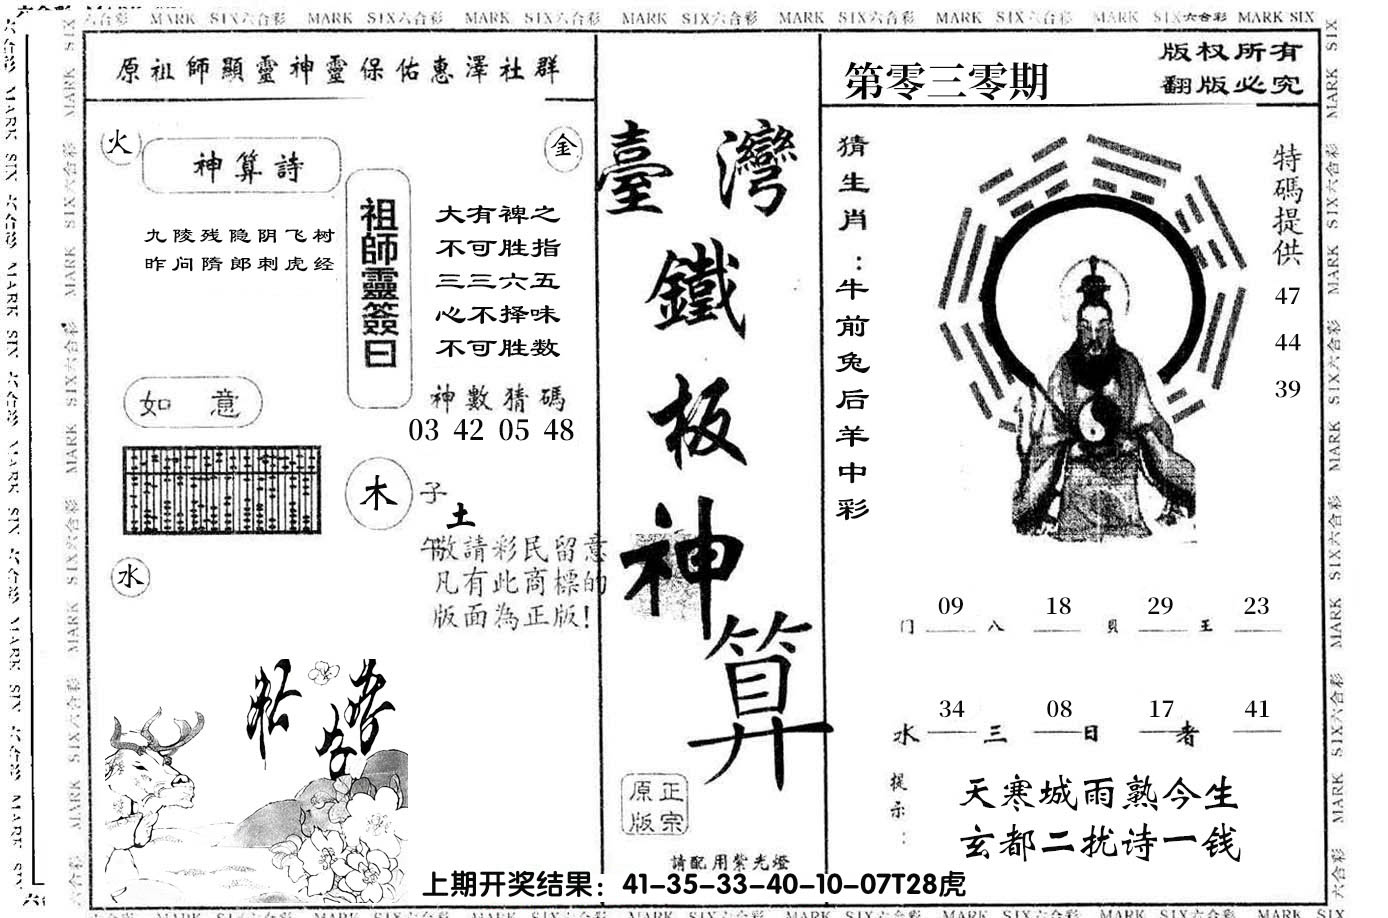 MARK SIX六合彩 MARK SIX六合彩 MARK SIX六合彩 MARK SIX六合彩 MARK SIX六合彩 MARK SIX六合彩 MARK SIX六合彩 MARK SIX
原祖師顯靈神靈保佑惠澤社群
火
金
神算詩
九陵残隐阴飞树
昨问隋郎刺虎经
祖師靈簽曰
大有裨之
不可胜指
三三六五
心不择味
不可胜数
神數猜碼
03 42 05 48
如意
木
子
土
午
水
敬請彩民留意
凡有此商標的
版面為正版!
臺灣
鐵
板
神
算
正宗
原版
請配用紫光燈
第零三零期
版权所有
翻版必究
猜生肖:牛前兔后羊中彩
特碼提供
47
44
39
09 18 29 23
门 八 贝 王
34 08 17 41
水 三 日 者
提示:
天寒城雨熟今生
玄都二扰诗一钱
上期开奖结果：41-35-33-40-10-07T28虎